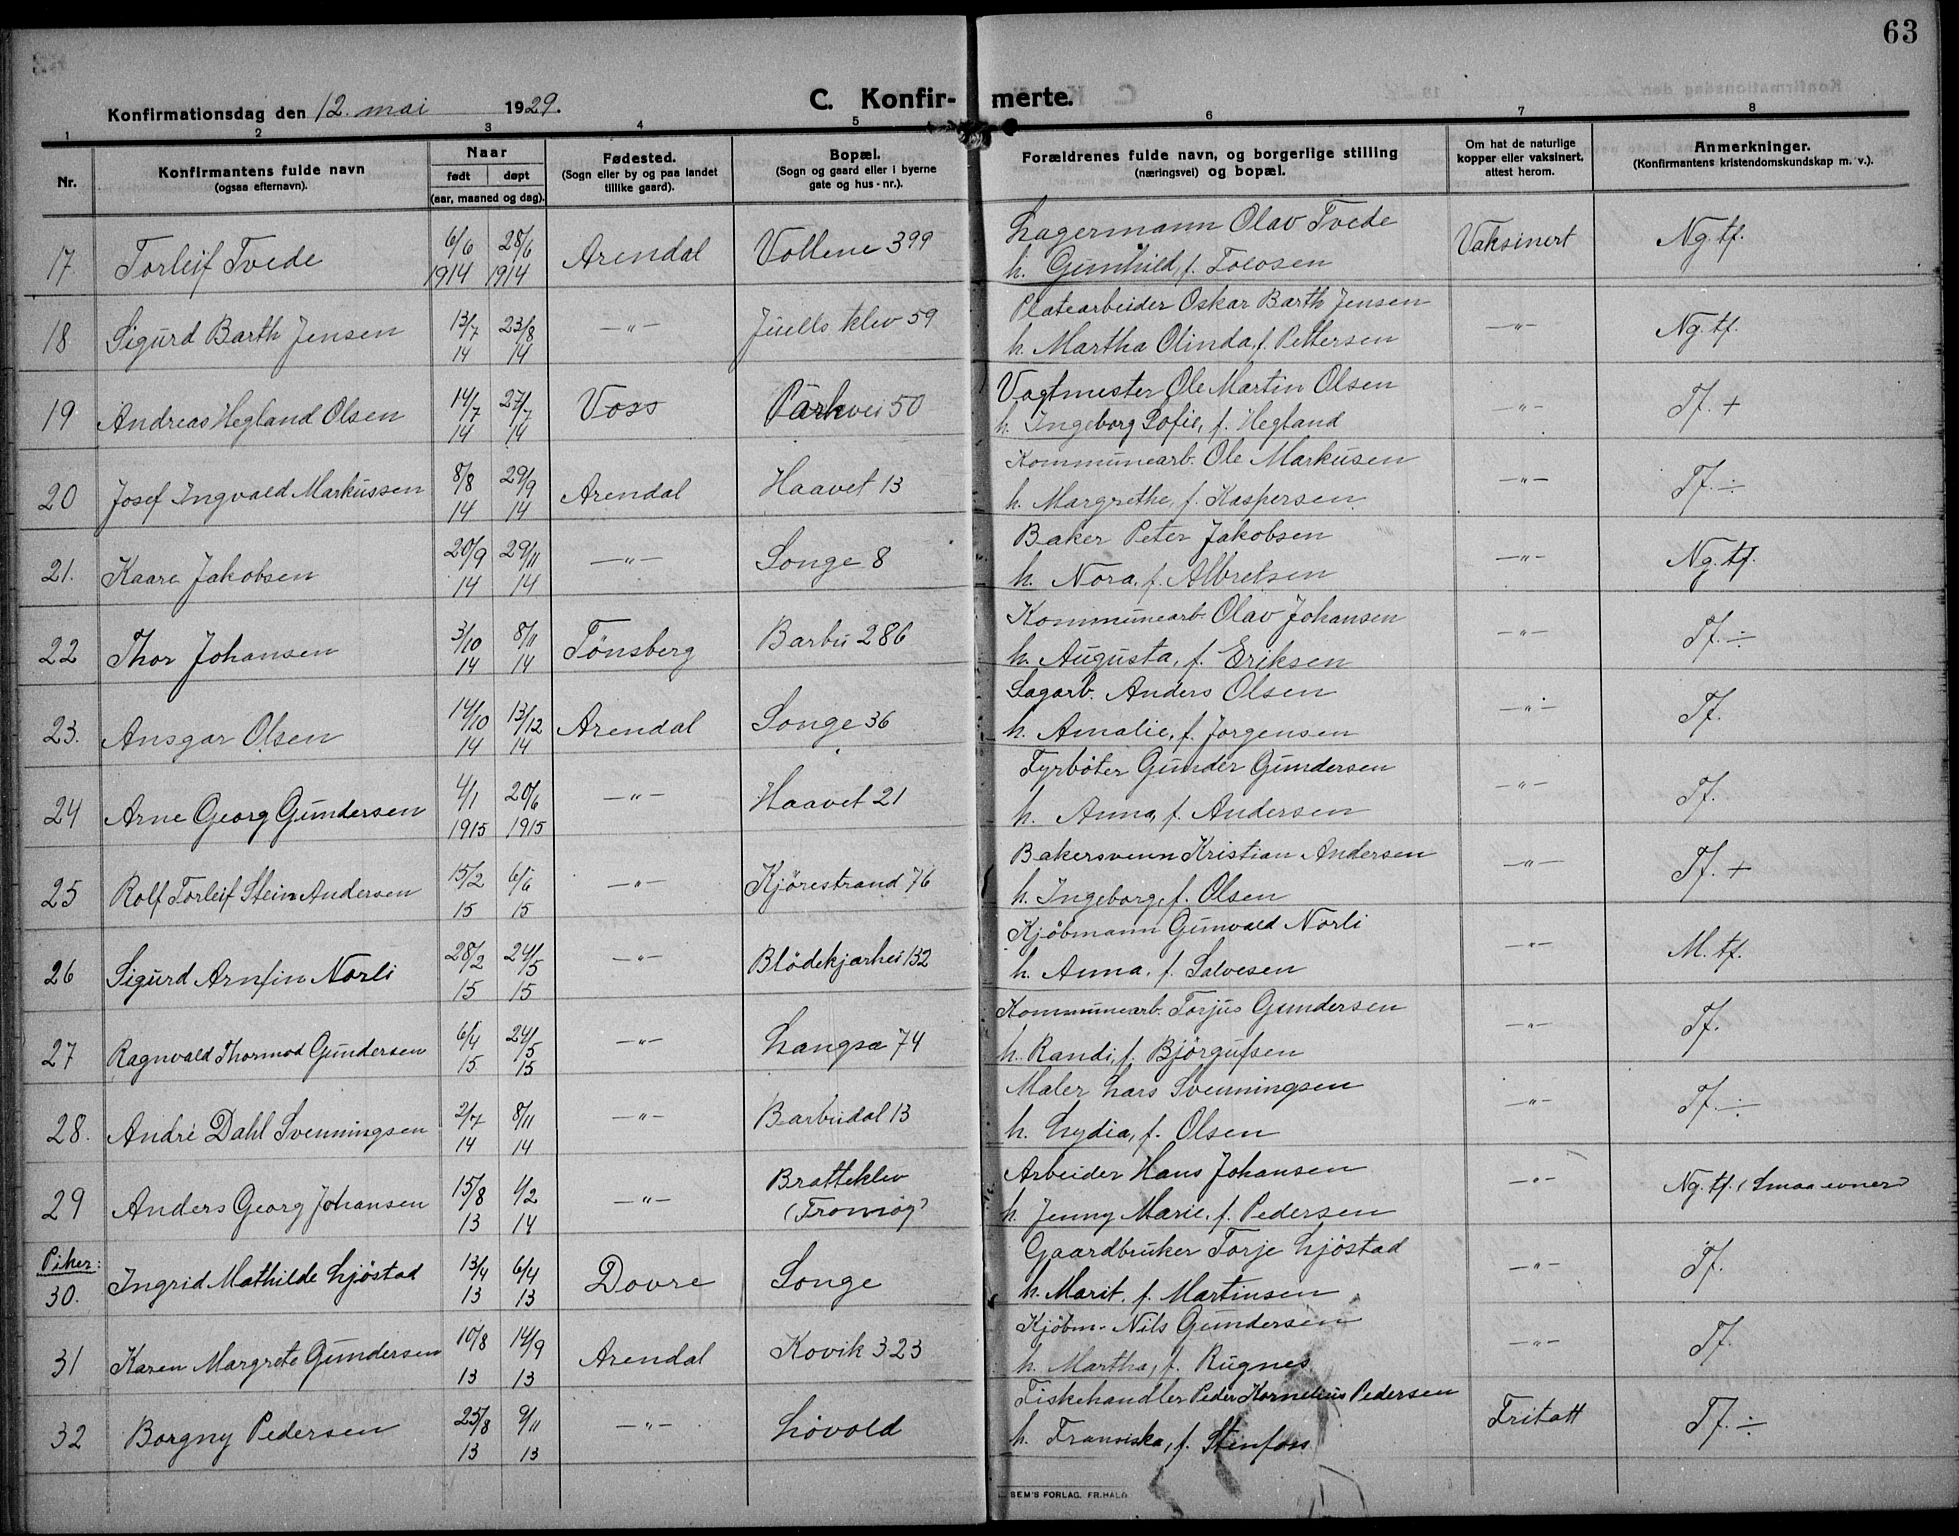 63
Konfirmationsdag den 12. mai 1929.
C. Konfir- merte.
1 2 3 4 5 6 7 8
Nr.
Konfirmantens fulde navn
(ogsaa efternavn).
Naar
født døpt
(aar, maaned og dag).
Fødested.
(Sogn eller by og paa landet
tillike gaard).
Bopæl.
(Sogn og gaard eller i byerne
gate og hus-nr.).
Forældrenes fulde navn, og borgerlige stilling
(næringsvei) og bopæl.
Om hat de naturlige
kopper eller vaksinert,
attest herom.
Anmerkninger.
(Konfirmantens kristendomskundskap m. v.).
17. Torleif Tvede 6/6 1914 28/6 1914 Arendal Vollene 399 Lagermann Olav Tvede Vaksinert Ng. tf.
h. Gunhild, f.
18 Sigurd Barth Jensen 13/7 14 23/8 14 —"— Juells klev 59 Platearbeider Oskar Barth Jensen —"— Ng. tf.
h. Martha Olinda, f. Pettersen
19 Andreas Hegland Olsen 14/7 14 27/7 14 Voss Parkvei 50 Vagtmester Ole Martin Olsen —"— Tf. +
h. Ingeborg Sofie, f. Hegland
20 Josef Ingvald Markussen 8/8 14 29/9 14 Arendal Haavet 13 Kommunearb. Ole Markusen —"— Tf. ÷
h. Margrethe, f. Kaspersen
21. Kaare Jakobsen 20/9 14 29/11 14 —"— Songe 8 Baker Peter Jakobsen —"— Ng. tf.
h. Nora, f. Albretsen
22 Thor Johansen 3/10 14 8/11 14 Tønsberg Barbu 286 Kommunearb. Olav Johansen —"— Tf. ÷
h. Augusta, f. Eriksen
23. Ansgar Olsen 14/10 14 13/12 14 Arendal Songe 36 Sagarb. Anders Olsen —"— Tf.
h. Amalie, f. Jørgensen
24 Arne Georg Gundersen 4/1 1915 20/6 1915 —"— Haavet 21 Fyrbøter Gunder Gundersen —"— Tf.
h. Anna, f. Andersen
25 Rolf Torleif Stein Andersen 15/2 15 6/6 15 —"— Kjörestrand 76 Bakersvenn Kristian Andersen —"— Tf. +
h. Ingeborg, f. Olsen
26 Sigurd Arnfin Norli 28/2 15 24/5 15 —"— Blödekjærhei 132 Kjöbmann Gunvald Norli —"— M. tf.
h. Anna, f. Salvesen
27 Ragnvald Thormod Gundersen 6/4 15 24/5 15 —"— Langsæ 74 Kommunearb. Torjus Gundersen —"— Tf.
h. Randi, f. Bjørgufsen
28. André Dahl Svenningsen 2/7 14 8/11 14 —"— Barbudal 13 Maler Lars Svenningsen —"— Tf. ÷
h. Lydia, f. Olsen
29 Anders Georg Johansen 15/8 13 1/2 14 —"— Bratteklev (Tromøy) Arbeider Hans Johansen —"— Ng. tf. (Smaa evner)
h. Jenny Marie, f. Pedersen
Piker:
30. Ingrid Mathilde Ljöstad 13/4 13 6/4 13 Dovre Songe Gaardbruker Torje Ljöstad —"— Tf.
h. Marit, f. Martinsen
31 Karen Margrete Gundersen 10/8 13 14/9 13 Arendal Kovik 323 Kjöbm. Nils Gundersen —"— Tf.
h. Martha, f. Rugnes
32 Borgny Pedersen 25/8 13 9/11 13 —"— Løvold Fiskehandler Peder Kornelius Pedersen Fritatt Tf. ÷
h. Fransiska, f. Stenfoss
SEM'S FORLAG. FR.HALD